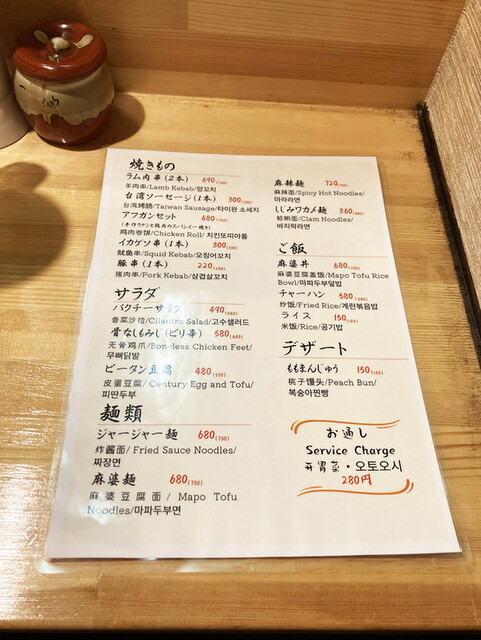 焼きもの
ラム肉串(2本) 690(760)
羊肉串/Lamb Kebab/양꼬치
台湾ソーセージ(1本) 300(330)
台湾烤肠/Taiwan Sausage/타이완 소세지
アフガンセット 680(750)
鸡肉卷饼/Chicken Roll/치킨또띠아롤
イカゲソ串(1本) 300(330)
鱿鱼串/Squid Kebab/오징어꼬치
豚串(1本) 220
猪肉串/Pork Kebab/삼겹살꼬치
サラダ
パクチーサラダ 490(540)
香菜沙拉/Cilantro Salad/고수샐러드
骨なしもみじ(ピリ辛) 580(640)
无骨鸡爪/Boneless Chicken Feet/
무뼈닭발
ピータン豆腐 480(530)
皮蛋豆腐/Century Egg and Tofu/
피딴두부
麺類
ジャージャー麺 680(750)
炸酱面/Fried Sauce Noodles/
짜장면
麻婆麺 680(750)
麻婆豆腐面/Mapo Tofu
Noodles/마파두부면
麻辣麺 720
麻辣面/Spicy Hot Noodles/
마라라면
しじみワカメ麺 360
蛤蜊面/Clam Noodles/
바지락라면
ご飯
麻婆丼 680(750)
麻婆豆腐盖饭/Mapo Tofu Rice
Bowl/마파두부덮밥
チャーハン 580(640)
炒饭/Fried Rice/계란볶음밥
ライス 150(165)
米饭/Rice/공기밥
デザート
ももまんじゅう 150(165)
桃子馒头/Peach Bun/
복숭아찐빵
お通し
Service Charge
开胃菜・오토오시
280円